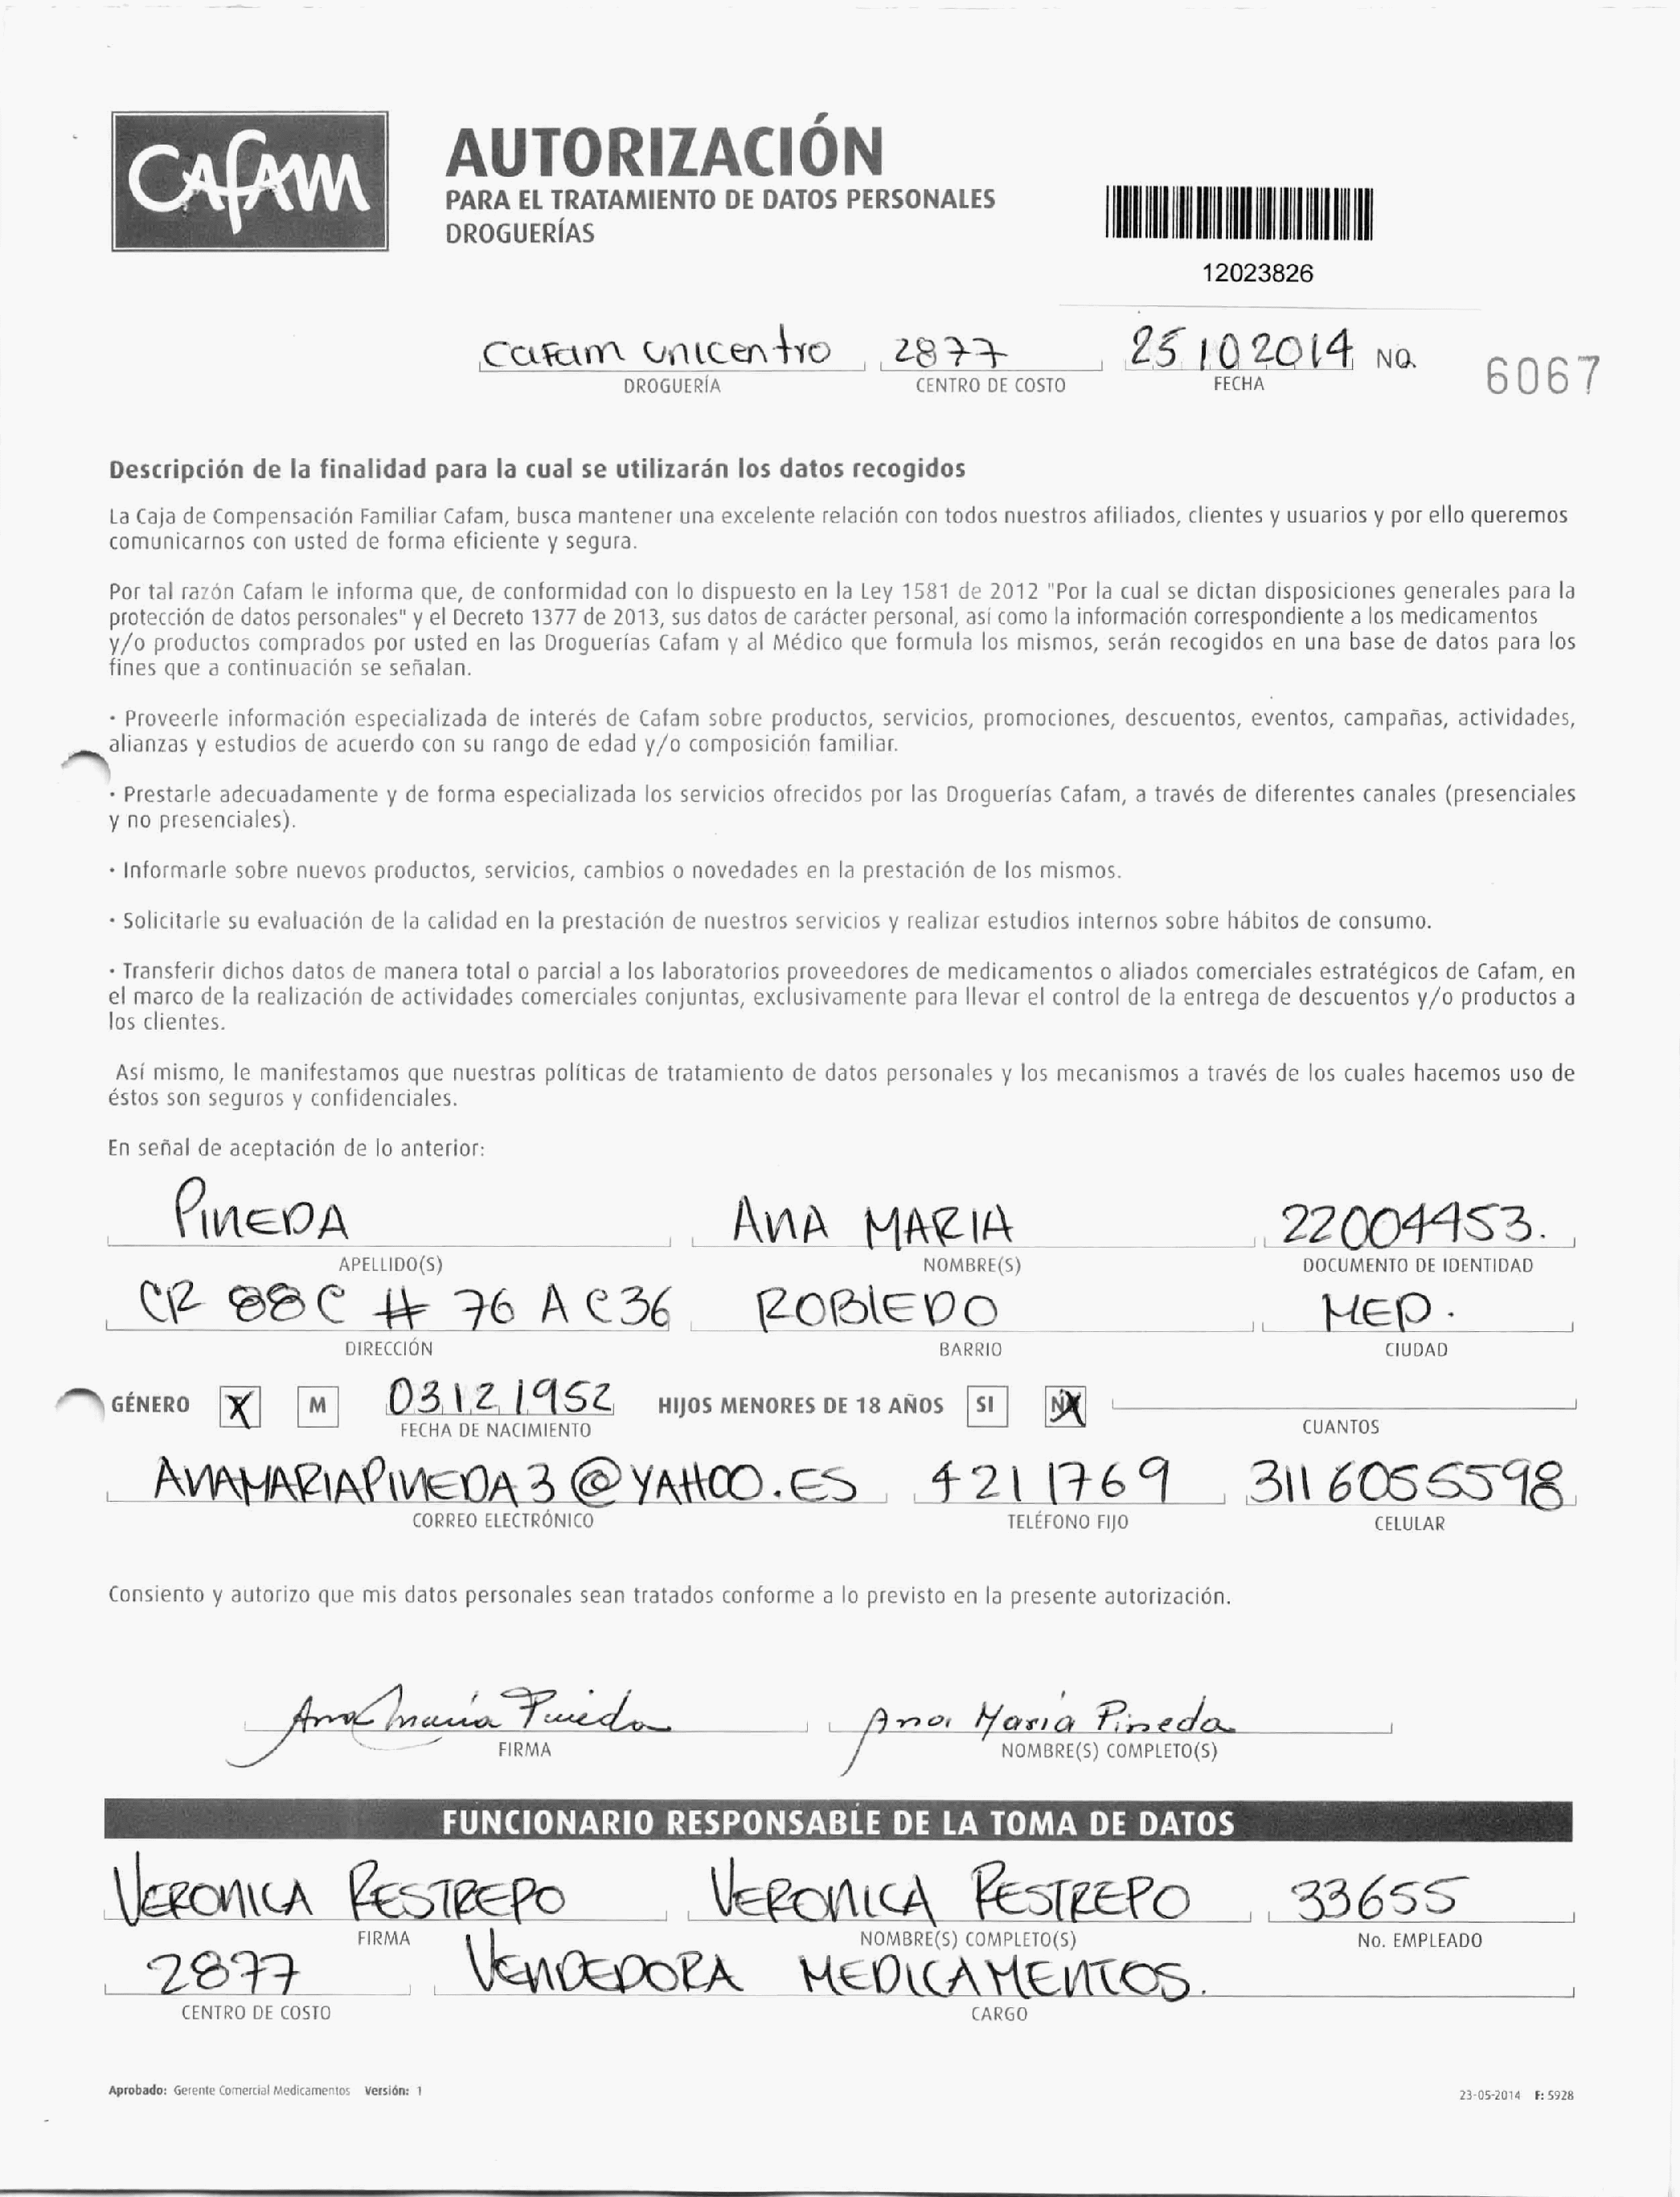 CAFAM
AUTORIZACIÓN
PARA EL TRATAMIENTO DE DATOS PERSONALES
DROGUERÍAS
12023826
Cafam unicentro 2877 25 10 2014 NO. 6067
DROGUERÍA CENTRO DE COSTO FECHA
Descripción de la finalidad para la cual se utilizarán los datos recogidos
La Caja de Compensación Familiar Cafam, busca mantener una excelente relación con todos nuestros afiliados, clientes y usuarios y por ello queremos
comunicarnos con usted de forma eficiente y segura.
Por tal razón Cafam le informa que, de conformidad con lo dispuesto en la Ley 1581 de 2012 "Por la cual se dictan disposiciones generales para la
protección de datos personales" y el Decreto 1377 de 2013, sus datos de carácter personal, así como la información correspondiente a los medicamentos
y/o productos comprados por usted en las Droguerías Cafam y al Médico que formula los mismos, serán recogidos en una base de datos para los
fines que a continuación se señalan.
· Proveerle información especializada de interés de Cafam sobre productos, servicios, promociones, descuentos, eventos, campañas, actividades,
alianzas y estudios de acuerdo con su rango de edad y/o composición familiar.
· Prestarle adecuadamente y de forma especializada los servicios ofrecidos por las Droguerías Cafam, a través de diferentes canales (presenciales
y no presenciales).
· Informarle sobre nuevos productos, servicios, cambios o novedades en la prestación de los mismos.
· Solicitarle su evaluación de la calidad en la prestación de nuestros servicios y realizar estudios internos sobre hábitos de consumo.
· Transferir dichos datos de manera total o parcial a los laboratorios proveedores de medicamentos o aliados comerciales estratégicos de Cafam, en
el marco de la realización de actividades comerciales conjuntas, exclusivamente para llevar el control de la entrega de descuentos y/o productos a
los clientes.
Así mismo, le manifestamos que nuestras políticas de tratamiento de datos personales y los mecanismos a través de los cuales hacemos uso de
éstos son seguros y confidenciales.
En señal de aceptación de lo anterior:
PINEDA ANA MARIA 22004453.
APELLIDO(S) NOMBRE(S) DOCUMENTO DE IDENTIDAD
CR 88C # 76 A C36 ROBLEDO MED.
DIRECCIÓN BARRIO CIUDAD
GÉNERO X M 03 12 1952 HIJOS MENORES DE 18 AÑOS SI NO X
FECHA DE NACIMIENTO CUANTOS
ANAMARIAPINEDA3@YAHOO.ES 4211769 3116055598
CORREO ELECTRÓNICO TELÉFONO FIJO CELULAR
Consiento y autorizo que mis datos personales sean tratados conforme a lo previsto en la presente autorización.
Ana María Pineda Ana María Pineda
FIRMA NOMBRE(S) COMPLETO(S)
FUNCIONARIO RESPONSABLE DE LA TOMA DE DATOS
VERONICA RESTREPO VERONICA RESTREPO 33655
FIRMA NOMBRE(S) COMPLETO(S) No. EMPLEADO
2877 VENDEDORA MEDICAMENTOS.
CENTRO DE COSTO CARGO
Aprobado: Gerente Comercial Medicamentos Versión: 1
23-05-2014 F: 5928